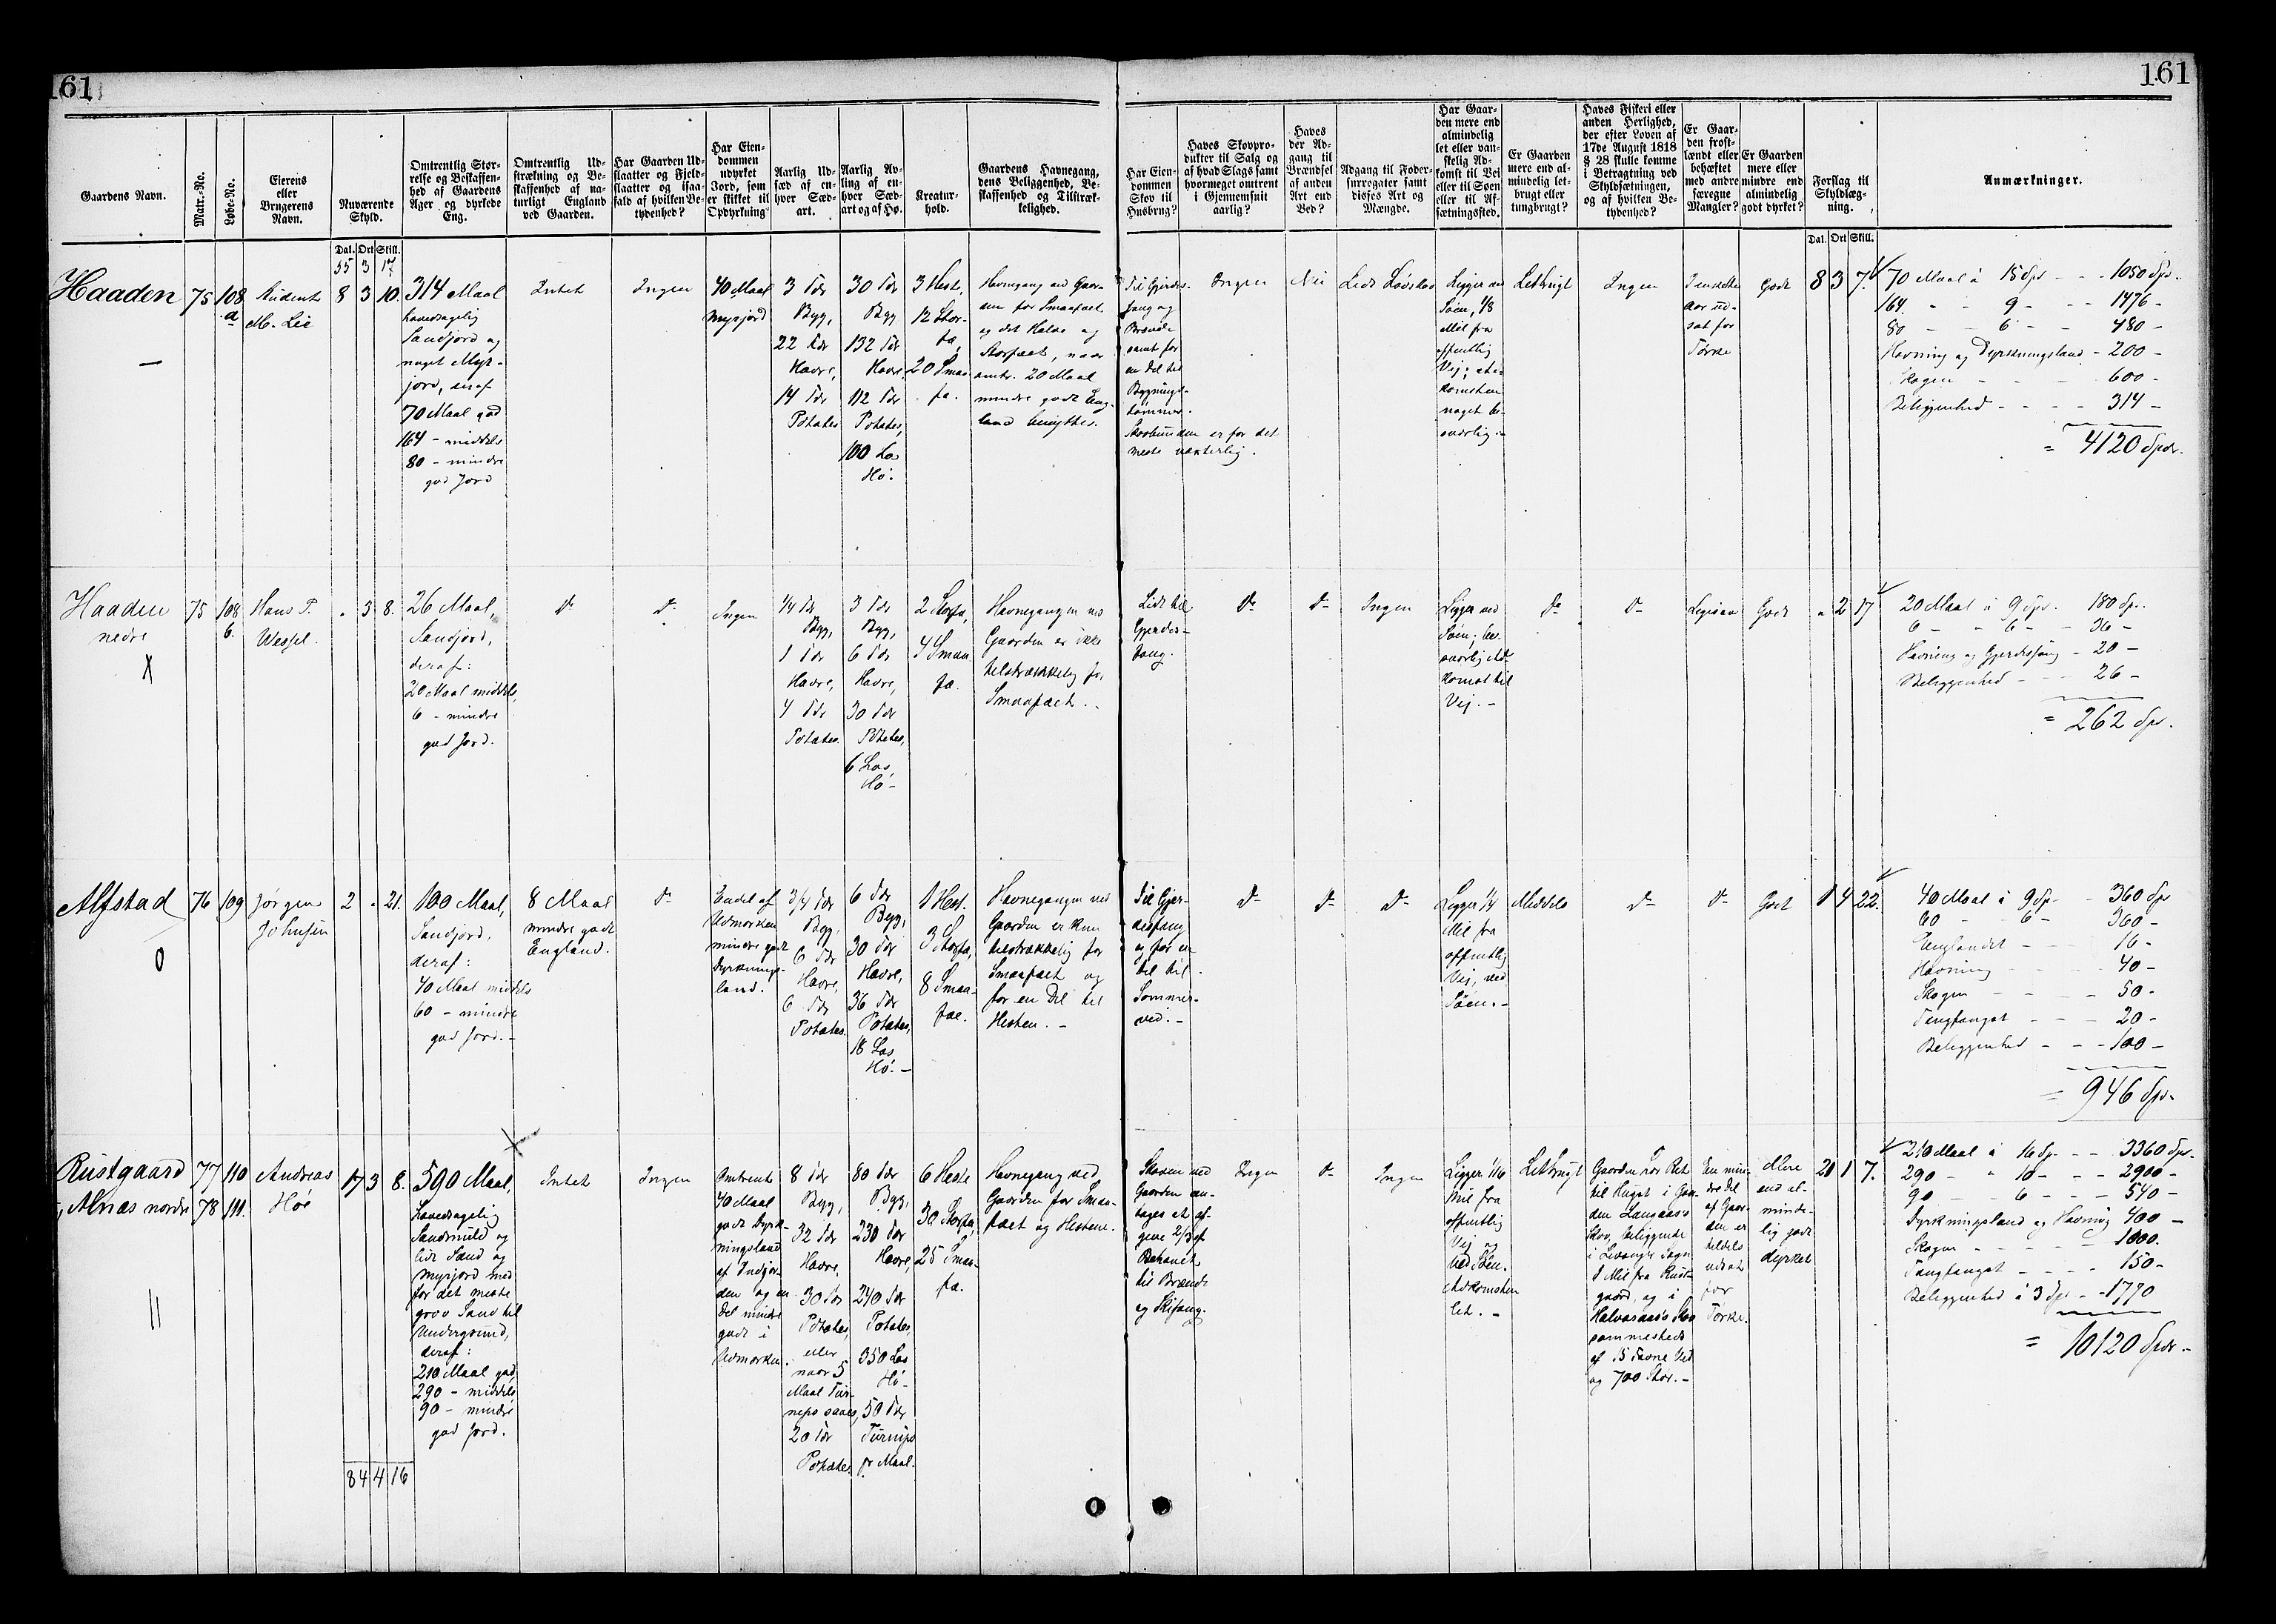 161
161
Gaardens Navn.
Matr.-No.
Løbe-No.
Eierens
eller
Brugerens
Navn.
Nuværende
Skyld.
Omtrentlig Stør-
relse og Beskaffen-
hed af Gaardens
Ager og dyrkede
Eng.
Omtrentlig Ud-
strækning og Be-
skaffenhed af na-
turligt England
ved Gaarden.
Har Gaarden Ud-
slaatter og Fjeld-
slaatter og isaa-
fald af hvilken Be-
tydenhed?
Har Eien-
dommen
udyrket
Jord, som
er skikket til
Opdyrkning?
Aarlig Ud-
sæd af en-
hver Sæd-
art.
Aarlig Av-
ling af en-
hver Sæd-
art og af Hø.
Kreatur-
hold.
Gaardens Havnegang,
dens Beliggenhed, Be-
skaffenhed og Tilstræk-
kelighed.
Har Eien-
dommen
Skov til
Husbrug?
Haves Skovpro-
dukter til Salg og
af hvad Slags samt
hvormeget omtrent
i Gjennemsnit
aarlig?
Haves
der Ad-
gang til
Brændsel
af anden
Art end
Ved?
Adgang til Foder-
surrogater samt
disses Art og
Mængde.
Har Gaar-
den mere end
almindelig
let eller van-
skelig Ad-
komst til Vei
eller til Søen
eller til Af-
sætningssted.
Er Gaarden
mere end al-
mindelig let-
brugt eller
tungbrugt?
Haves Fiskeri eller
anden Herlighed,
der efter Loven af
17de August 1818
§ 28 skulle komme
i Betragtning ved
Skyldsætningen,
og af hvilken Be-
tydenhed?
Er Gaar-
den frost-
lændt eller
behæftet
med andre
særegne
Mangler?
Er Gaarden
mere eller
mindre end
almindelig
godt dyrket?
Forslag til
Skyldlæg-
ning.
Anmærkninger.
Dal. Ort Skill.
Dal. Ort Skill.
55 3 17
Haaden
75
108
a
Student
M. Lie
8 3 10.
314 Maal
hovedsagelig
Sandjord og
noget Myr-
jord, deraf
70 Maal god
164 - middels
80 - mindre
god Jord
Intet
Ingen
40 Maal
Myrjord
3 Tdr
Byg,
22 Tdr
Havre,
14 Tdr
Potetes
30 Tdr
Byg
132 Tdr
Havre,
112 Tdr
Potetes,
100 Las
Hø.
3 Heste,
12 Stor-
fæ,
20 Smaa-
fæ.
Havnegang ved Gaar-
den for Smaafæet
og det Halve af
Storfæet, naar
omtr. 20 Maal
mindre godt Eng-
land benyttes.
Til Gjerdes-
fang og
Brænde
samt for
en Del til
Bygnings-
tømmer.
Skovbunden er for det
meste væxterlig.
Ingen
Nei
Lidt Løvskov
Ligger ved
Søen, 1/8
Mil fra
offentlig
Vej; Ad-
komsten
noget be-
sværlig.-
Letbrugt
Ingen
I enkelte
Aar ud-
sat for
Tørke
Godt
8 3 7.
70 Maal à 15 Spd - - 1050 Spd.
164 - - 9 - - 1476 -
80 - - 6 - - 480 -
Havning og Dyrkningsland - 200 -
Skogen - - - 600 -
Beliggenhed - - - 314 -
= 4120 Spdr.
Haaden
nedre
X
75
108
b.
Hans P.
Wessel.
- 3 8.
26 Maal,
Sandjord,
deraf:
20 Maal middels,
6 - mindre
god Jord.
Do
Do
Ingen
1/4 Td
Byg,
1 Tdr
Havre,
4 Tdr
Potetes.
3 Tdr
Byg,
6 Tdr
Havre,
30 Tdr
Potetes,
6 Las
Hø -
2 Storfæ,
4 Smaa-
fæ.
Havnegangen ved
Gaarden er ikke
tilstrækkelig for
Smaafæet. -
Lidt til
Gjerdes-
fang.
Do
Do
Ingen
Ligger ved
Søen; be-
sværlig Ad-
komst til
Vej. -
Do
Do
Ligesaa
Godt
- 2 17
20 Maal à 9 Spd. 180 Sp.
6 - - 6 - - 36 -
Havning og Gjerdesfang - 20 -
Beliggenhed - - - 26 -
= 262 Spd.
Alfstad
0
76
109
Jørgen
Johnsen
2 - 21.
100 Maal,
Sandjord,
deraf:
40 Maal middels
60 - mindre
god Jord. -
8 Maal
mindre godt
England.
Do
Endel af
Udmarken
mindre godt
Dyrknings-
land.
3/4 Tdr
Byg,
6 Tdr
Havre,
6 Tdr
Potetes.
6 Tdr
Byg,
30 Tdr
Havre,
36 Tdr
Potetes,
18 Las
Hø. -
1 Hest.
3 Storfæ,
8 Smaa-
fæ.
Havnegangen ved
Gaarden er kun
tilstrækkelig for
Smaafæet og
for en Del til
Hesten. -
Til Gjer-
desfang
og for en
Del til
Sommer-
ved. -
Do
Do
Do
Ligger 1/4
Mil fra
offentlig
Vej, ved
Søen. -
Middels
Do
Do
Godt
1 4 22.
40 Maal à 9 Sp. - 360 Sp
60 - - 6 - 360 -
Englandet - - - 16 -
Havning - - - 40 -
Skogen - - - 50 -
Tangfangst - - - 20 -
Beliggenhed - - - 100 -
= 946 Spd.
Rustgaard
Alnæs nordre
||
77
78
110
111.
Andreas
Høe
17 3 8.
590 Maal,
hovedsagelig
Sandmuld og
lidt Sand og
Myrjord med
for det meste
grov Sand til
Undergrund,
deraf:
210 Maal god,
290 - middels
90 - mindre
god Jord.
84 4 16
Intet
Ingen
Omtrent
40 Maal
godt Dyrk-
ningsland
af Indjor-
den og en
Del mindre
godt i
Udmarken.
8 Tdr
Byg,
32 Tdr
Havre,
30 Tdr
Potetes,
eller
naar 5
Maal Tur-
neps saaes,
20 Tdr
Potetes
80 Tdr
Byg,
230 Tdr
Havre,
240 Tdr
Potetes,
350 Las
Hø -
50 Tdr
Turnips
pr Maal.
6 Heste
30 Storfæ,
25 Smaa-
fæ.
Havnegang ved
Gaarden for Smaa-
fæet og Hestene.
Skoven ved
Gaarden an-
tages at af-
give 2/3 af
Behovet
til Brænde
og Skifang.
Ingen
Do
Ingen
Ligger 1/16
Mil fra
offentlig
Vej og
ved Søen.
Adkomsten
let. -
Letbrugt
Gaarden har Ret
til Hugst i Gaar-
den Langaas's
Skov, beliggende
i Levanger Sogn
1 Mil fra Rust-
gaard, og i
Halvoraas's Skov
sammesteds
af 15 Favne Ved
og 700 Stør. -
En min-
dre Del
af Gaar-
den er
tildels
udsat
for
Tørke.
Mere
end al-
minde-
lig godt
dyrket
20 1 7.
210 Maal à 16 Sp. - - 3360 Sp.
290 - - 10 - - 2900 -
90 - - 6 - - 540 -
Dyrkningsland og Havning 400 -
Skogen - - - 1000.
Tangfangst - - - 150 -
Beliggenhed à 3 Sp. - 1770
= 10120 Spdr. -